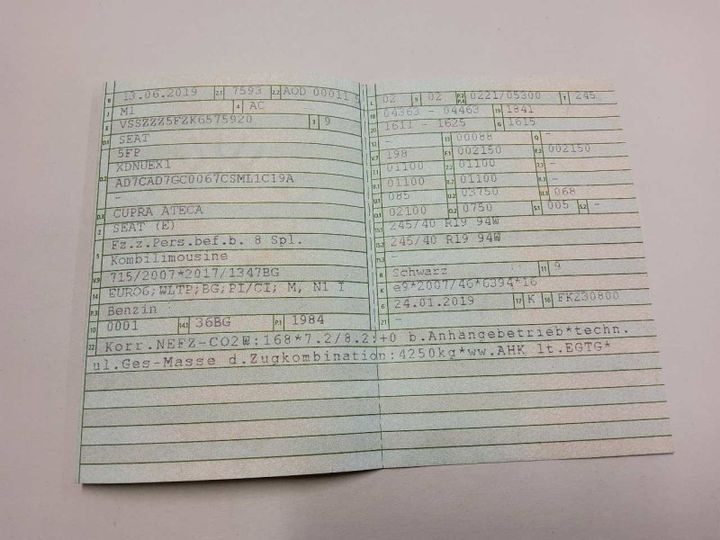 B 13.06.2019 2.1 7593 2.2 AOD 00011 5
J M1 4 AC
E VSSZZZ5FZK6575920 3 9
D.1 SEAT
5FP
XDNUEX1
D.2 AD7CAD7GC0067CSML1C19A
-
D.3 CUPRA ATECA
2 SEAT (E)
5 Fz.z.Pers.bef.b. 8 Spl.
Kombilimousine
V.9 715/2007*2017/1347BG
14 EURO6;WLTP;BG;PI/CI; M, N1 I
P.3 Benzin
10 0001 14.1 36BG P.1 1984
L 02 9 02 P.2 P.4 0221/05300 T 245
18 04363 - 04463 19 1841
20 1611 - 1625 G 1615
12 - 13 00088 Q -
V.7 198 F.1 002150 F.2 002150
7.1 01100 7.2 01100 7.3 -
8.1 01100 8.2 01100 8.3 -
U.1 085 U.2 03750 U.3 068
O.1 02100 O.2 0750 S.1 005 S.2 -
15.1 245/40 R19 94W
15.2 245/40 R19 94W
15.3 -
R Schwarz 11 9
K e9*2007/46*6394*16
6 24.01.2019 17 K 16 FK230800
21 -
22 Korr.NEFZ-CO2W:168*7.2/8.2:+0 b.Anhängebetrieb*techn.
zul.Ges-Masse d.Zugkombination:4250kg*ww.AHK lt.EGTG*